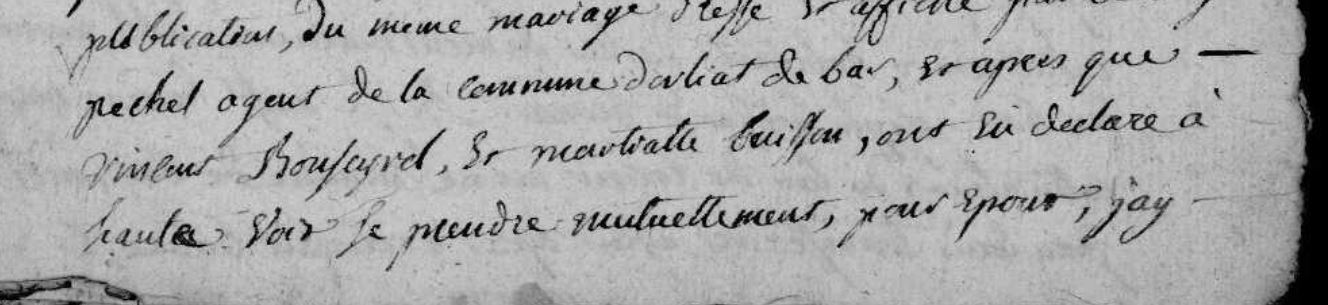 publication, du meme mariage dresse et affiche par
pechel agent de la commune dorliat de bar, et apres que —
vincent Bouscyrol, et martialle buisson, ont eu declare à
haute voix se prendre mutuellement, pour epoux, jay —